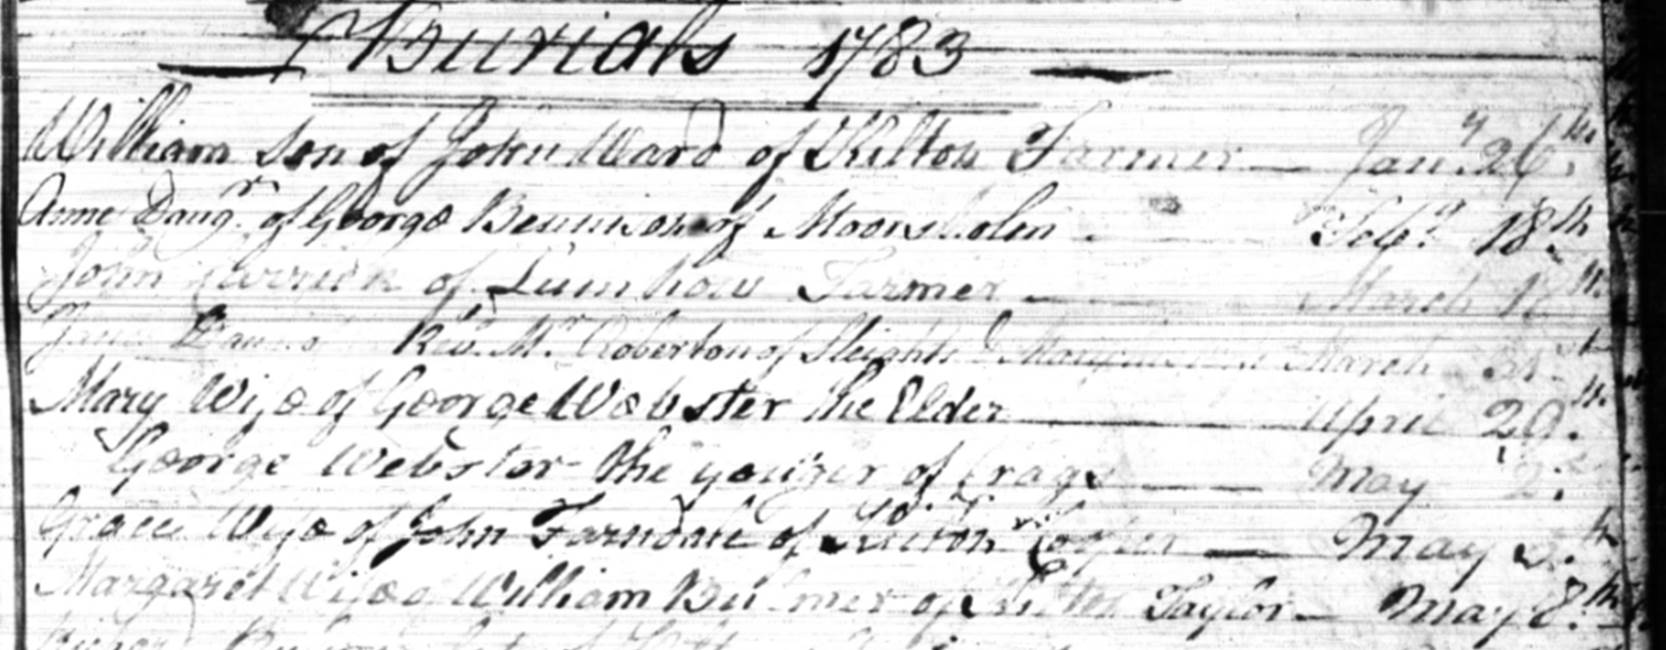 Burials 1783
William Son of John Ward of Kilton Farmer Jan.y 26.th
Anne Daug.r of George Bennison of Moorsholm Feb.y 18.th
John of Farmer March
Jane Rev.d M.r Roberton of Sleights March
Mary Wife of George Webster the Elder April 29.th
George Webster the younger of Crags May 2.
Grace Wife of John Farndale of Kilton May
Margaret Wife of William Bulmer of Taylor May 8.th